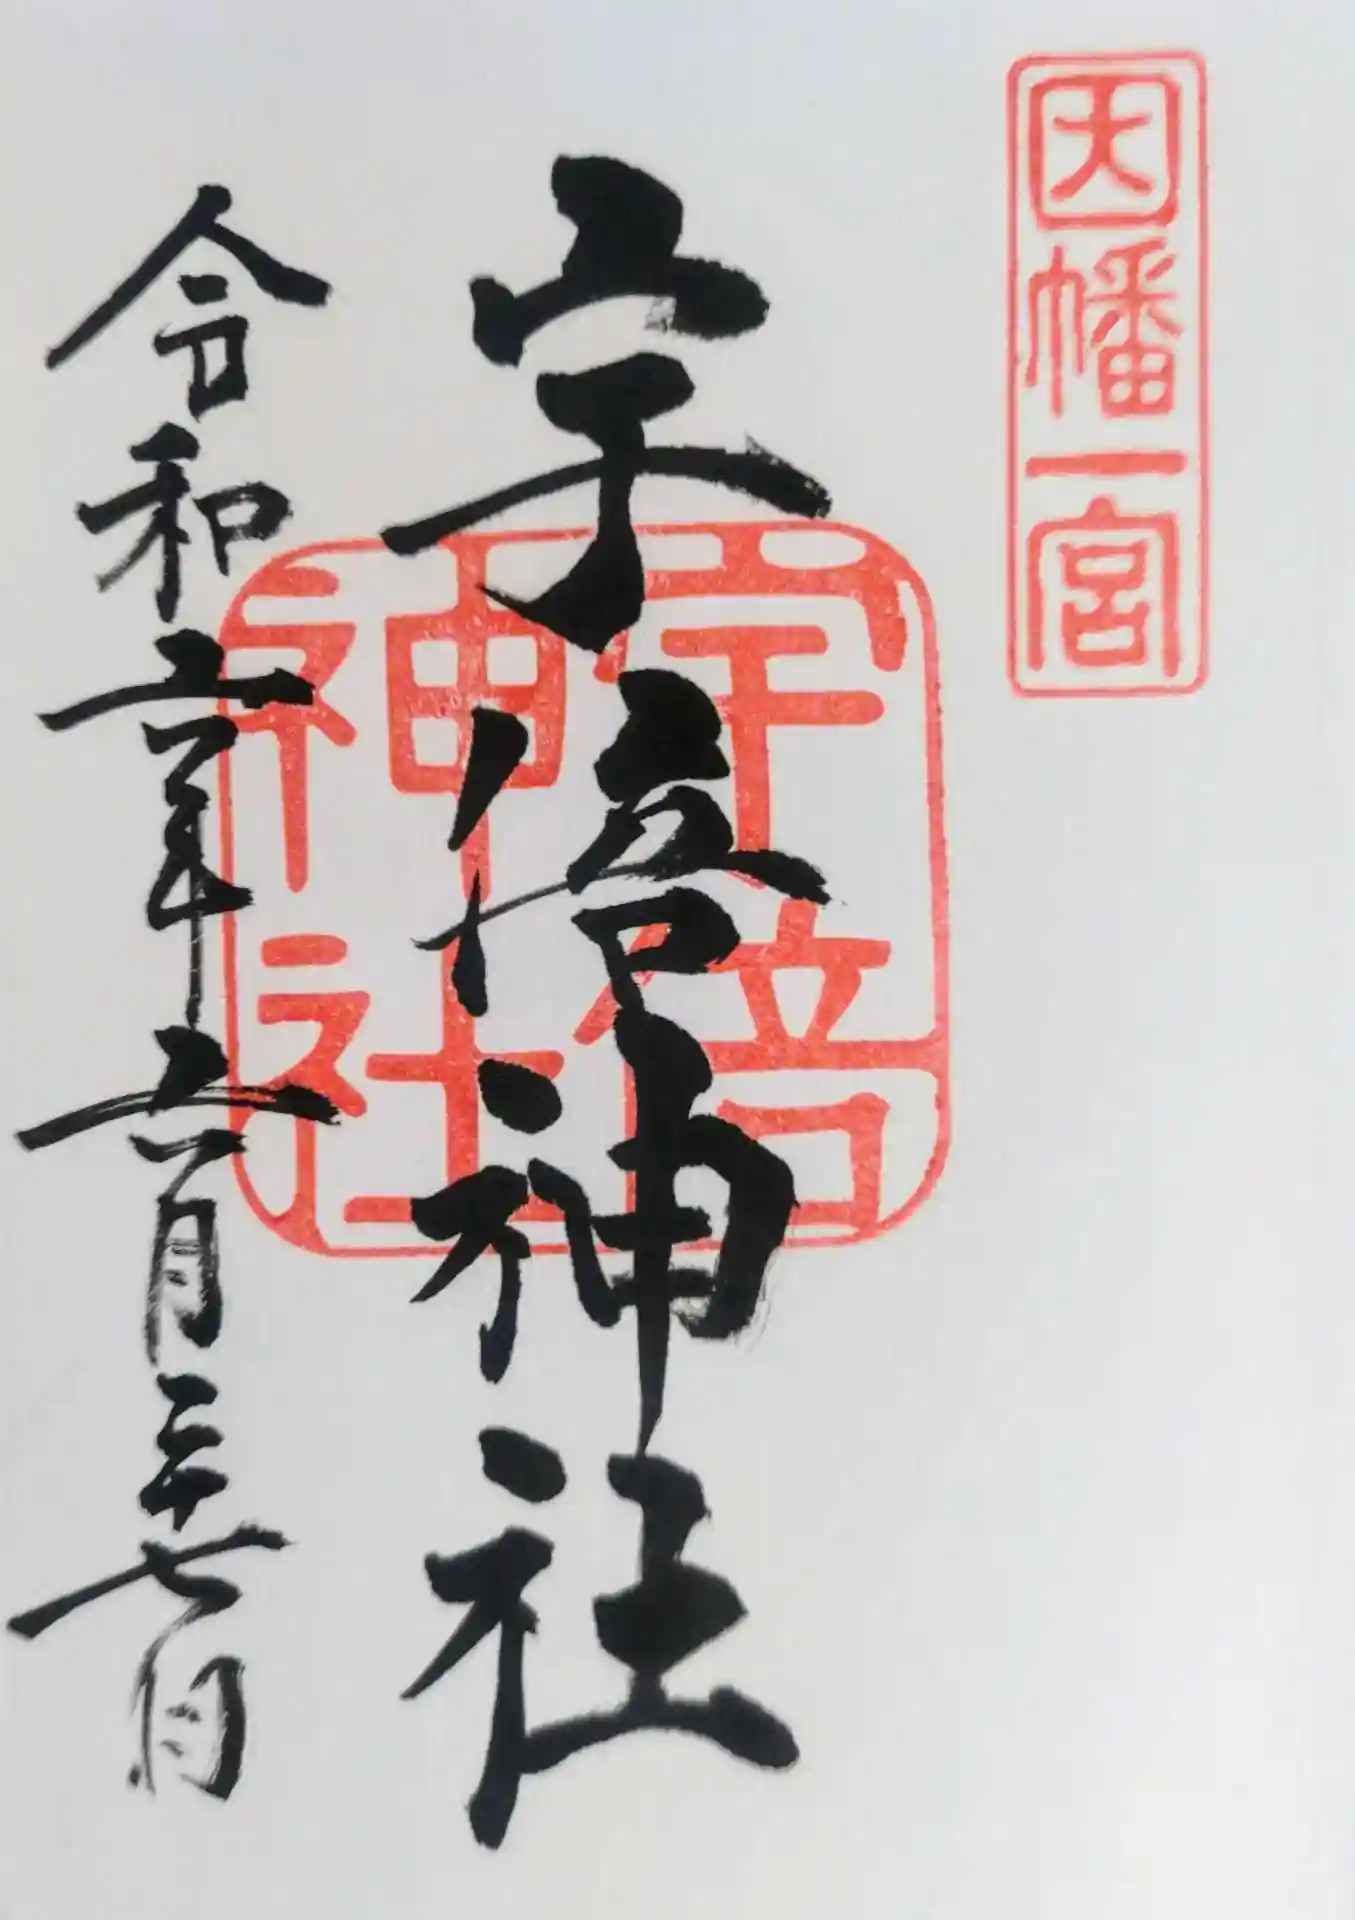 因幡一宮
宇倍神社
宇倍
神社
令和六年六月二十七日